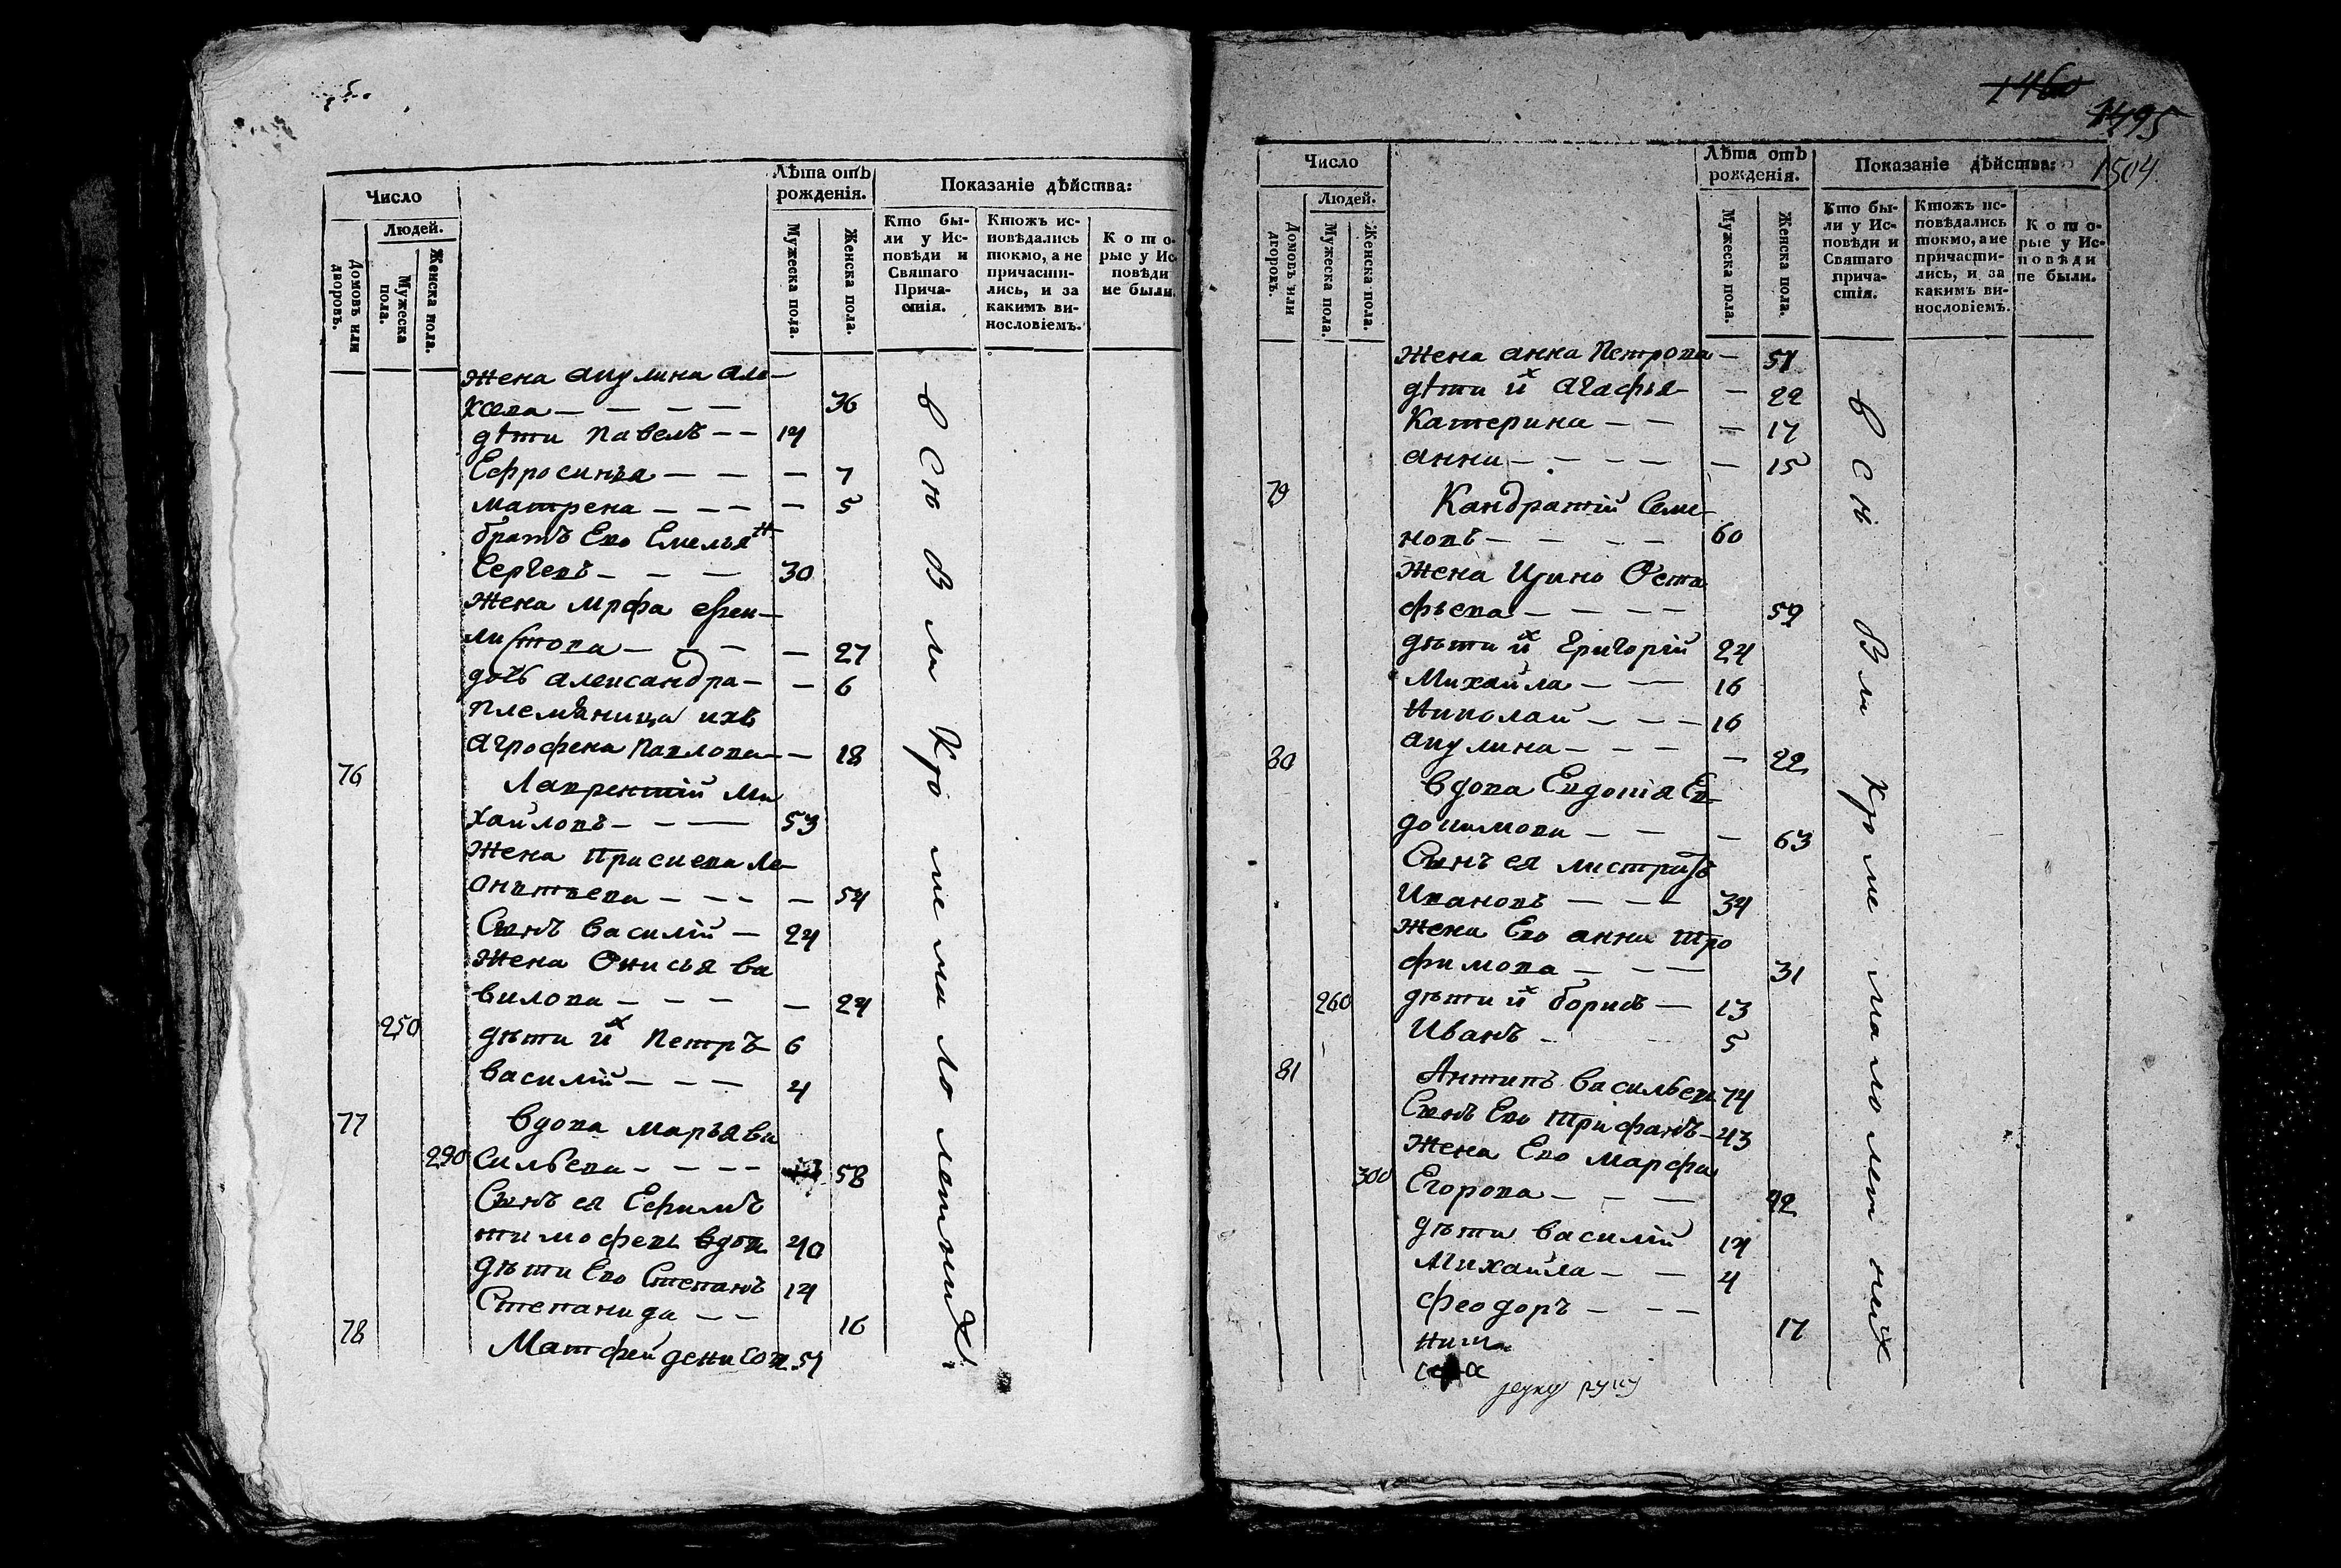 Число
Людей.
Домовъ или дворовъ.
Мужеска пола.
Женска пола.
Лѣта отъ рожденія.
Мужеска пола.
Женска пола.
Показаніе дѣйства:
Кто бы-
ли у Ис-
повѣди и
Святаго
Прича-
стія.
Ктожъ ис-
повѣдались
токмо, а не
причасти-
лись, и за
какимъ ви-
нословіемъ.
Кото-
рые у Ис-
повѣди
не были.
Жена Акулина Але-
ксева — — — — 36
дѣти Павелъ — — 14
Ефросинья — — — 7
Матрена — — — — 5
братъ Ево Емельян
Сергевъ — — — 30
Жена Мрфа
листова — — — — 27
дочь Александра — — 6
племяница ихъ
Агрофена Павлова — — 18
76 Лаврентій Ми
хайловъ — — — 53
Жена Прасковя Ле-
онтьева — — — — 54
Сынъ Василій — 24
Жена Онисья Ва
вилова — — — — 24
250 дѣти их Петръ 6
Василій — — — 4
77 Вдова Марья Ва
290 сильева — — — — 58
Сынъ ея Ефимъ
тимофевъ вдов 40
дѣти Ево Степанъ 14
Степанида — — 16
78 Матфей денисов 51
всѣ были кроме малолетних
1460
1495
1504
Число
Людей.
Домовъ или дворовъ.
Мужеска пола.
Женска пола.
Лѣта отъ рожденія.
Мужеска пола.
Женска пола.
Показаніе дѣйства:
Кто бы-
ли у Ис-
повѣди и
Святаго
прича-
стія.
Ктожъ ис-
повѣдались
токмо, а не
причасти-
лись, и за
какимъ ви-
нословіемъ.
Кото-
рые у Ис-
повѣди
не были.
Жена Анна Петрова — 51
дѣти их Агафья — 22
Катерина — — — 17
Анна — — — — — 15
79 Кандратій Семе-
новъ — — — — 60
Жена Ирина Оста
фьева — — — — 59
дѣти их Григорій 24
Михайла — — 16
Николай — — — 16
Акулина — — — — 22
80 Вдова Евдокія Ев-
докимова — — — 63
Сынъ ея
Ивановъ — — — 34
Жена Ево Анна Тро
фимова — — — 31
260 дѣти их Борисъ — 13
Иванъ — 5
81 Антипъ Васильев 74
Сынъ Ево Трифанъ — 43
Жена Ево Марфа
300 Егорова — — — 42
дѣти Василій 14
Михайла — — 4
Феодоръ — — —
17
руку